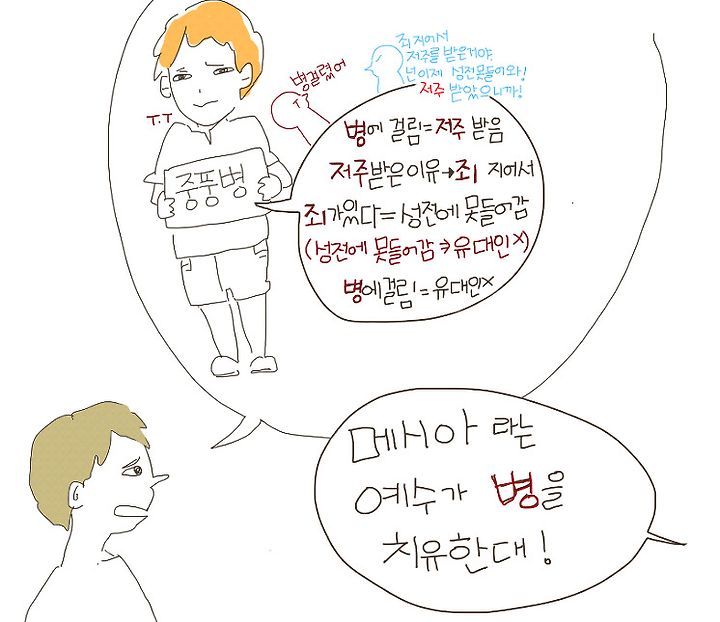 죄 지어서
저주를 받은거야
넌 이제 성전못들어와!
저주 받았으니까!
병걸렸어
T.T
중풍병
병에 걸림=저주 받음
저주받은 이유→죄 지어서
죄가있다=성전에 못들어감
(성전에 못들어감→유대인x)
병에걸림=유대인x
메시아 라는
예수가 병을
치유한대!